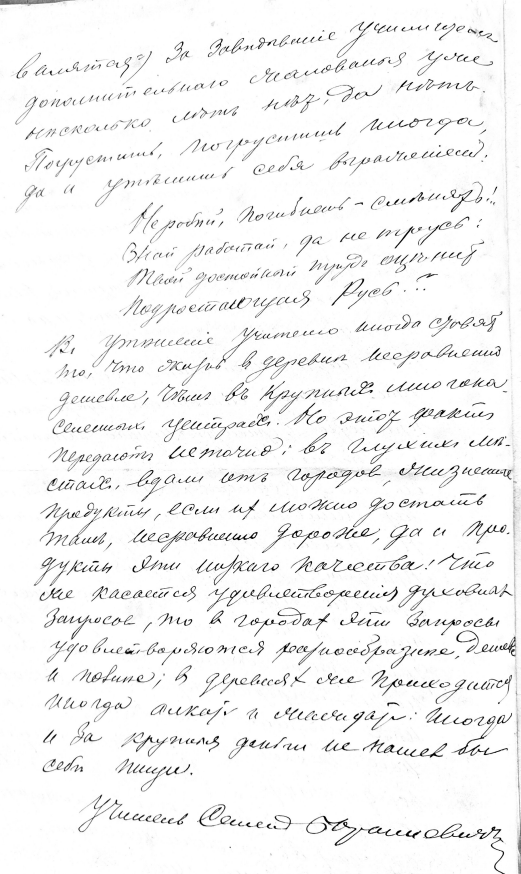 валятая=) За Завѣдываніе училищемъ
дополнительнаго жалованья уже
нѣсколько лѣтъ нѣт, да нѣтъ.
Погрустишь, погрустишь иногда,
да и утѣшишь себя
Не робѣй, погибнешь – смѣнятъ!..
Знай работай, да не трусь:
Твой достойный трудъ оцѣнитъ
Подростающая Русь!..
Въ утѣшеніе учителю иногда ставят
то, что жизнь в деревнѣ несравненно
дешевле, чѣмъ въ крупныхъ многона-
селенныхъ центрахъ. Но этотъ фактъ
передаютъ неточно: въ глухихъ мѣ-
стахъ, вдали отъ городов, жизненные
продукты, если их можно достать
тамъ, несравненно дороже, да и про-
дукты эти низкаго качества! Что
же касается удовлетворенія духовных
запросов, то в городах эти запросы
удовлетворяются разнообразнѣе, дешевле
и полнѣе; в деревнях же приходится
иногда алкать и жаждать: иногда
и за крупныя деньги не нашел бы
себѣ пищи.
Учитель Семенъ